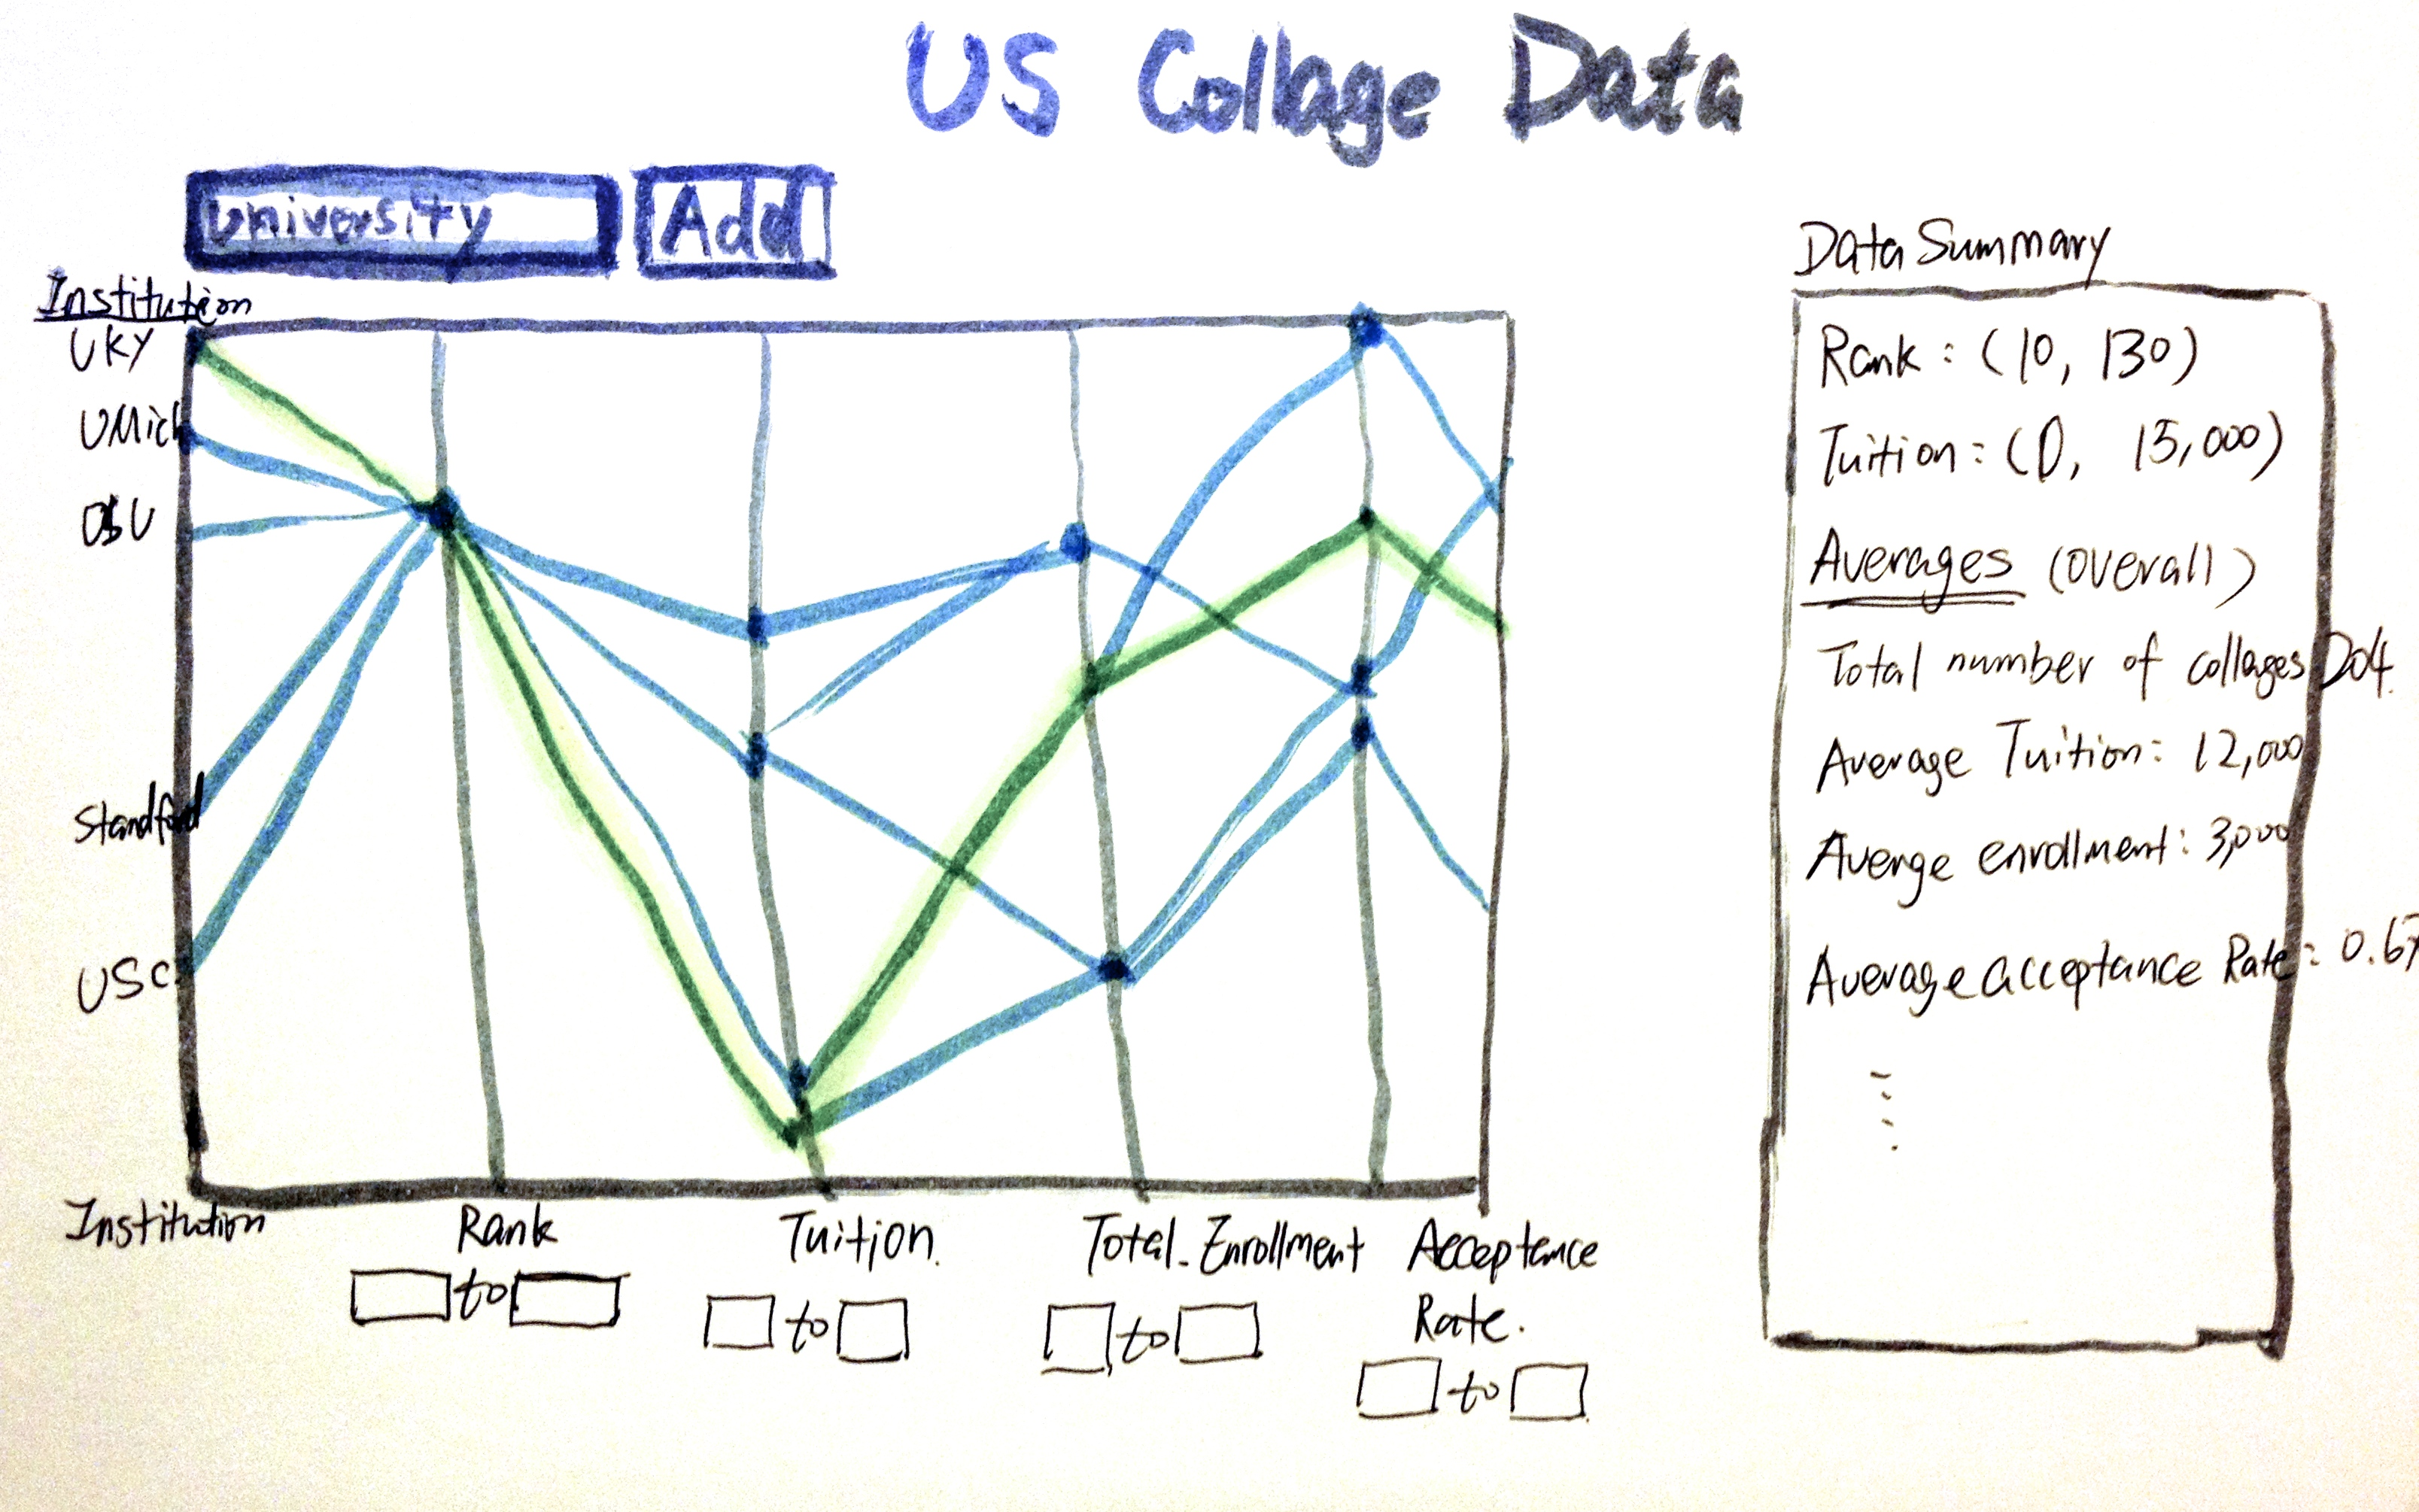 US Collage Data
University
Add
Institution
UKY
UMich
OSU
Standford
USC
Institution
Rank
to
Tuition.
to
Total_Enrollment
to
Acceptance
Rate.
to
Data Summary
Rank : (10, 130)
Tuition : (0, 15,000)
Averages (overall)
Total number of collages
Average Tuition: 12,000
Averge enrollment: 3,000
Average acceptance Rate: 0.67